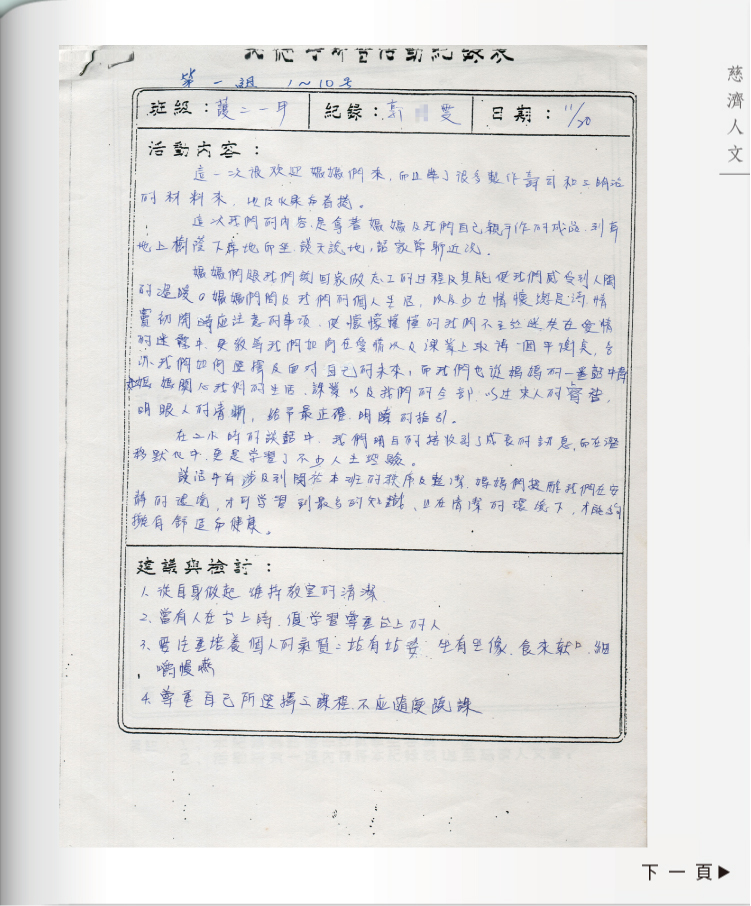 活動紀錄表
第一組 1~10号
班級：護二一甲
紀錄：
雯
日期：11/20
活動內容：
這一次很欢迎媽媽們來，而且帶了很多製作壽司和三明治
的材料來，以及水果和
這次我們的內容，是拿著媽媽及我們自己親手作的成品，到草
地上樹蔭下席地而坐，談天說地，話家常聊近況。
媽媽們跟我們說回家做志工的过程及其能使我們感受到人間
的溫暖。媽媽們問及我們的個人生活，以及少女情懷總是詩，情
竇初開時應注意的事項，使懵懵懂懂的我們不至於迷失在愛情
的迷霧中，更教導我們如何在愛情以及課業上取得一個平衡矣，告
訴我們如何選擇及面對自己的未來，而我們也從媽媽的一番話中得
知媽媽關心我們的生活、課業以及我們的全部，以过來人的
明眼人的清晰，給予最正確、明瞭的指引。
在二小時的談話中，我們明白的接收到了成長的訊息，而在潛
移默化中，更是學習了不少人生经驗。
談话中有涉及到關於本班的秩序及整潔，媽媽們提醒我們在安
靜的環境，才可學習到最多的知識，且在清潔的環境下，才能夠
擁有舒适和健康。
建議與檢討：
1. 從自身做起，維持教室的清潔
2. 當有人在台上時，須學習尊重台上的人
3. 要注重培養個人的氣質：站有站姿、坐有坐像、食來就口、細
嚼慢嚥
4. 尊重自己所選擇之課程，不应隨便蹺課
慈濟人文
下一頁▶